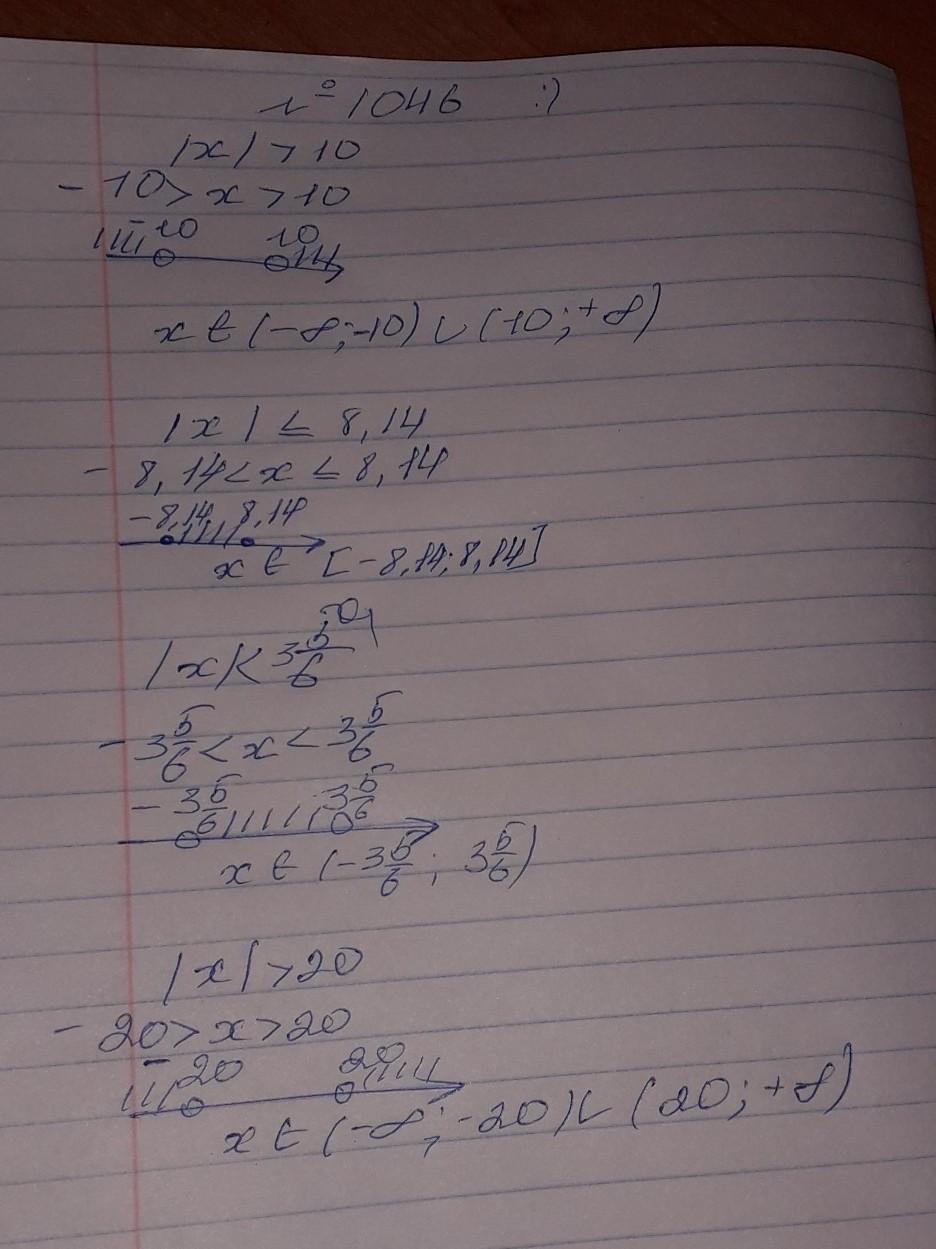 № 1046 :)
|x| > 10
- 10 > x > 10
-10 10
x ∈ (-∞; -10) ∪ (10; +∞)
|x| ≤ 8,14
- 8,14 < x ≤ 8,14
-8,14 8,14
x ∈ [-8,14; 8,14]
|x| < 3 5/6
- 3 5/6 < x < 3 5/6
- 3 5/6 3 5/6
x ∈ (-3 5/6; 3 5/6)
|x| > 20
- 20 > x > 20
-20 20
x ∈ (-∞; -20) ∪ (20; +∞)